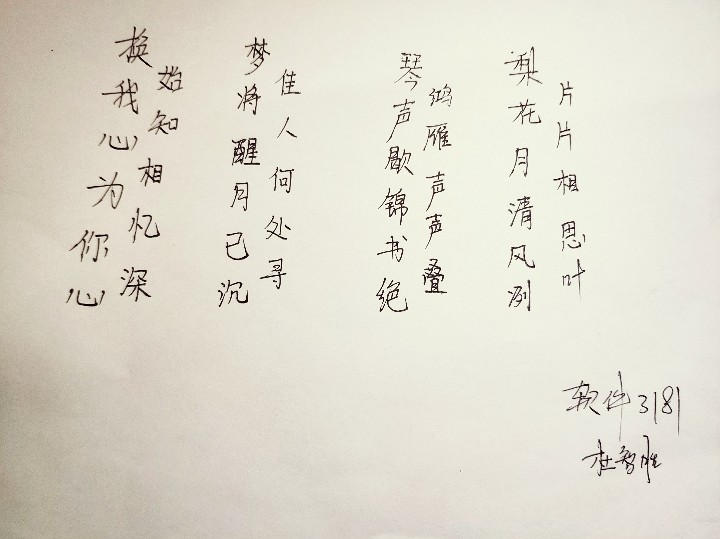 梨花月清风冽
片片相思叶
琴声歇锦书绝
鸿雁声声叠
梦将醒月已沉
佳人何处寻
换我心为你心
始知相忆深
软件3181
杜智胜